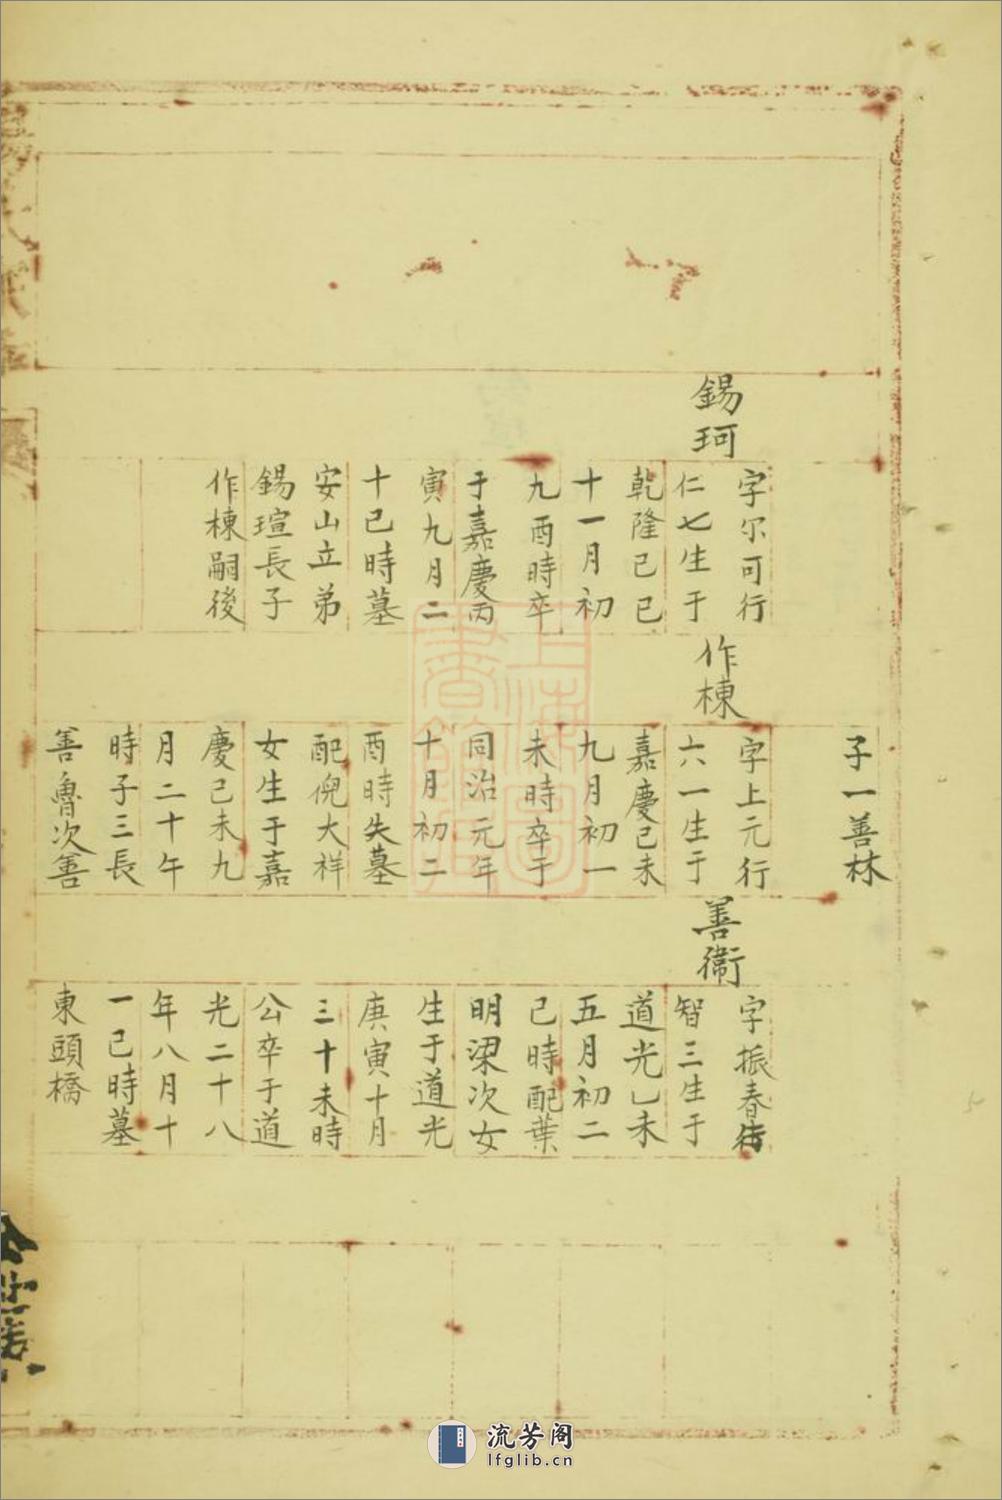 錫珂
字尔可行
仁七生于
乾隆己巳
十一月初
九酉時卒
于嘉慶丙
寅九月二
十巳時墓
安山立弟
錫瑄長子
作棟嗣後
子一善林
作棟
字上元行
六一生于
嘉慶己未
九月初一
未時卒于
同治元年
十月初二
酉時失墓
配倪大祥
女生于嘉
慶己未九
月二十午
時子三長
善魯次善
善衞
字振春行
智三生于
道光乚未
五月初二
巳時配葉
明梁次女
生于道光
庚寅十月
三十未時
公卒于道
光二十八
年八月十
一巳時墓
東頭橋
上海圖書館藏
流芳阁
lfglib.cn